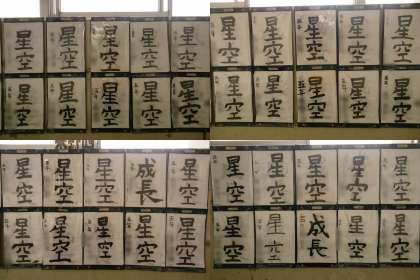 星空 星空 星空 星空 星空
星空 星空 星空 星空 星空
星空 星空 星空 星空 星空
星空 星空 星空 星空 星空
星空 星空 星空 成長 星空
星空 星空 星空 星空 星空
星空 星空 星空 星空 星空
星空 星空 成長 星空 星空